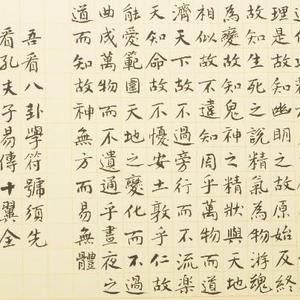 理是故知幽明之故原始及終
故知生死之說精氣為物游魂
為變是故知鬼神之精狀與天地
相似故不違知周乎萬物而道
濟天下故不過旁行而不流樂
天知命故不憂安土敦乎仁故
能愛範圍天地之化而不過
曲成萬物而不遺通乎晝夜之
道而知故神無方而易無體
吾看八卦學符號須先
看孔夫子易傳十翼全